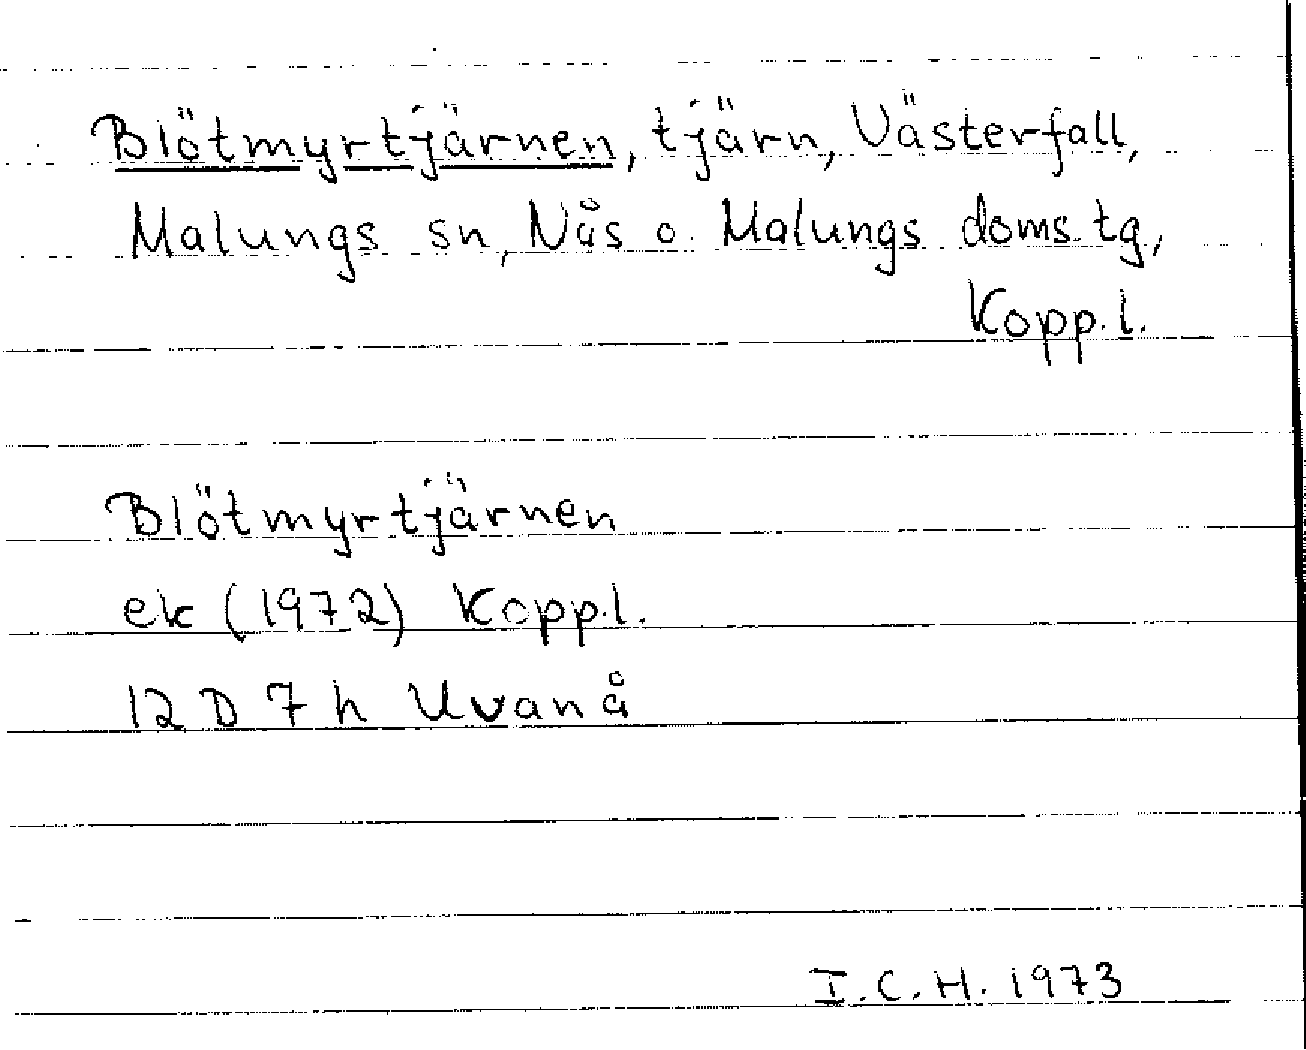 Blötmyrtjärnen, tjärn, Västerfall,
Malungs sn, Nås o. Malungs doms.tg,
Kopp.l.
Blötmyrtjärnen
ek (1972) Kopp.l.
12 D 7 h Uvanå
I.C.H. 1973